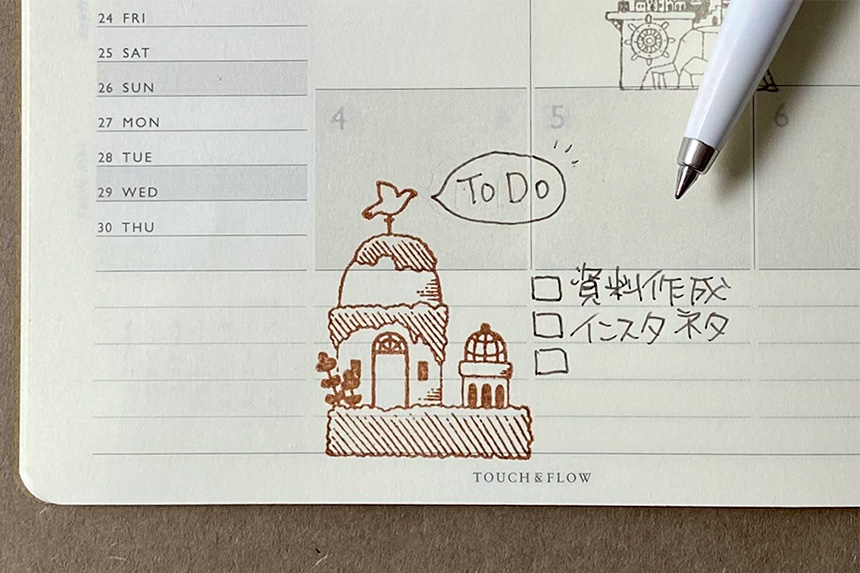 24 FRI
25 SAT
26 SUN
27 MON
28 TUE
29 WED
30 THU
4
5
6
To Do
資料作成
インスタ ネタ
TOUCH & FLOW